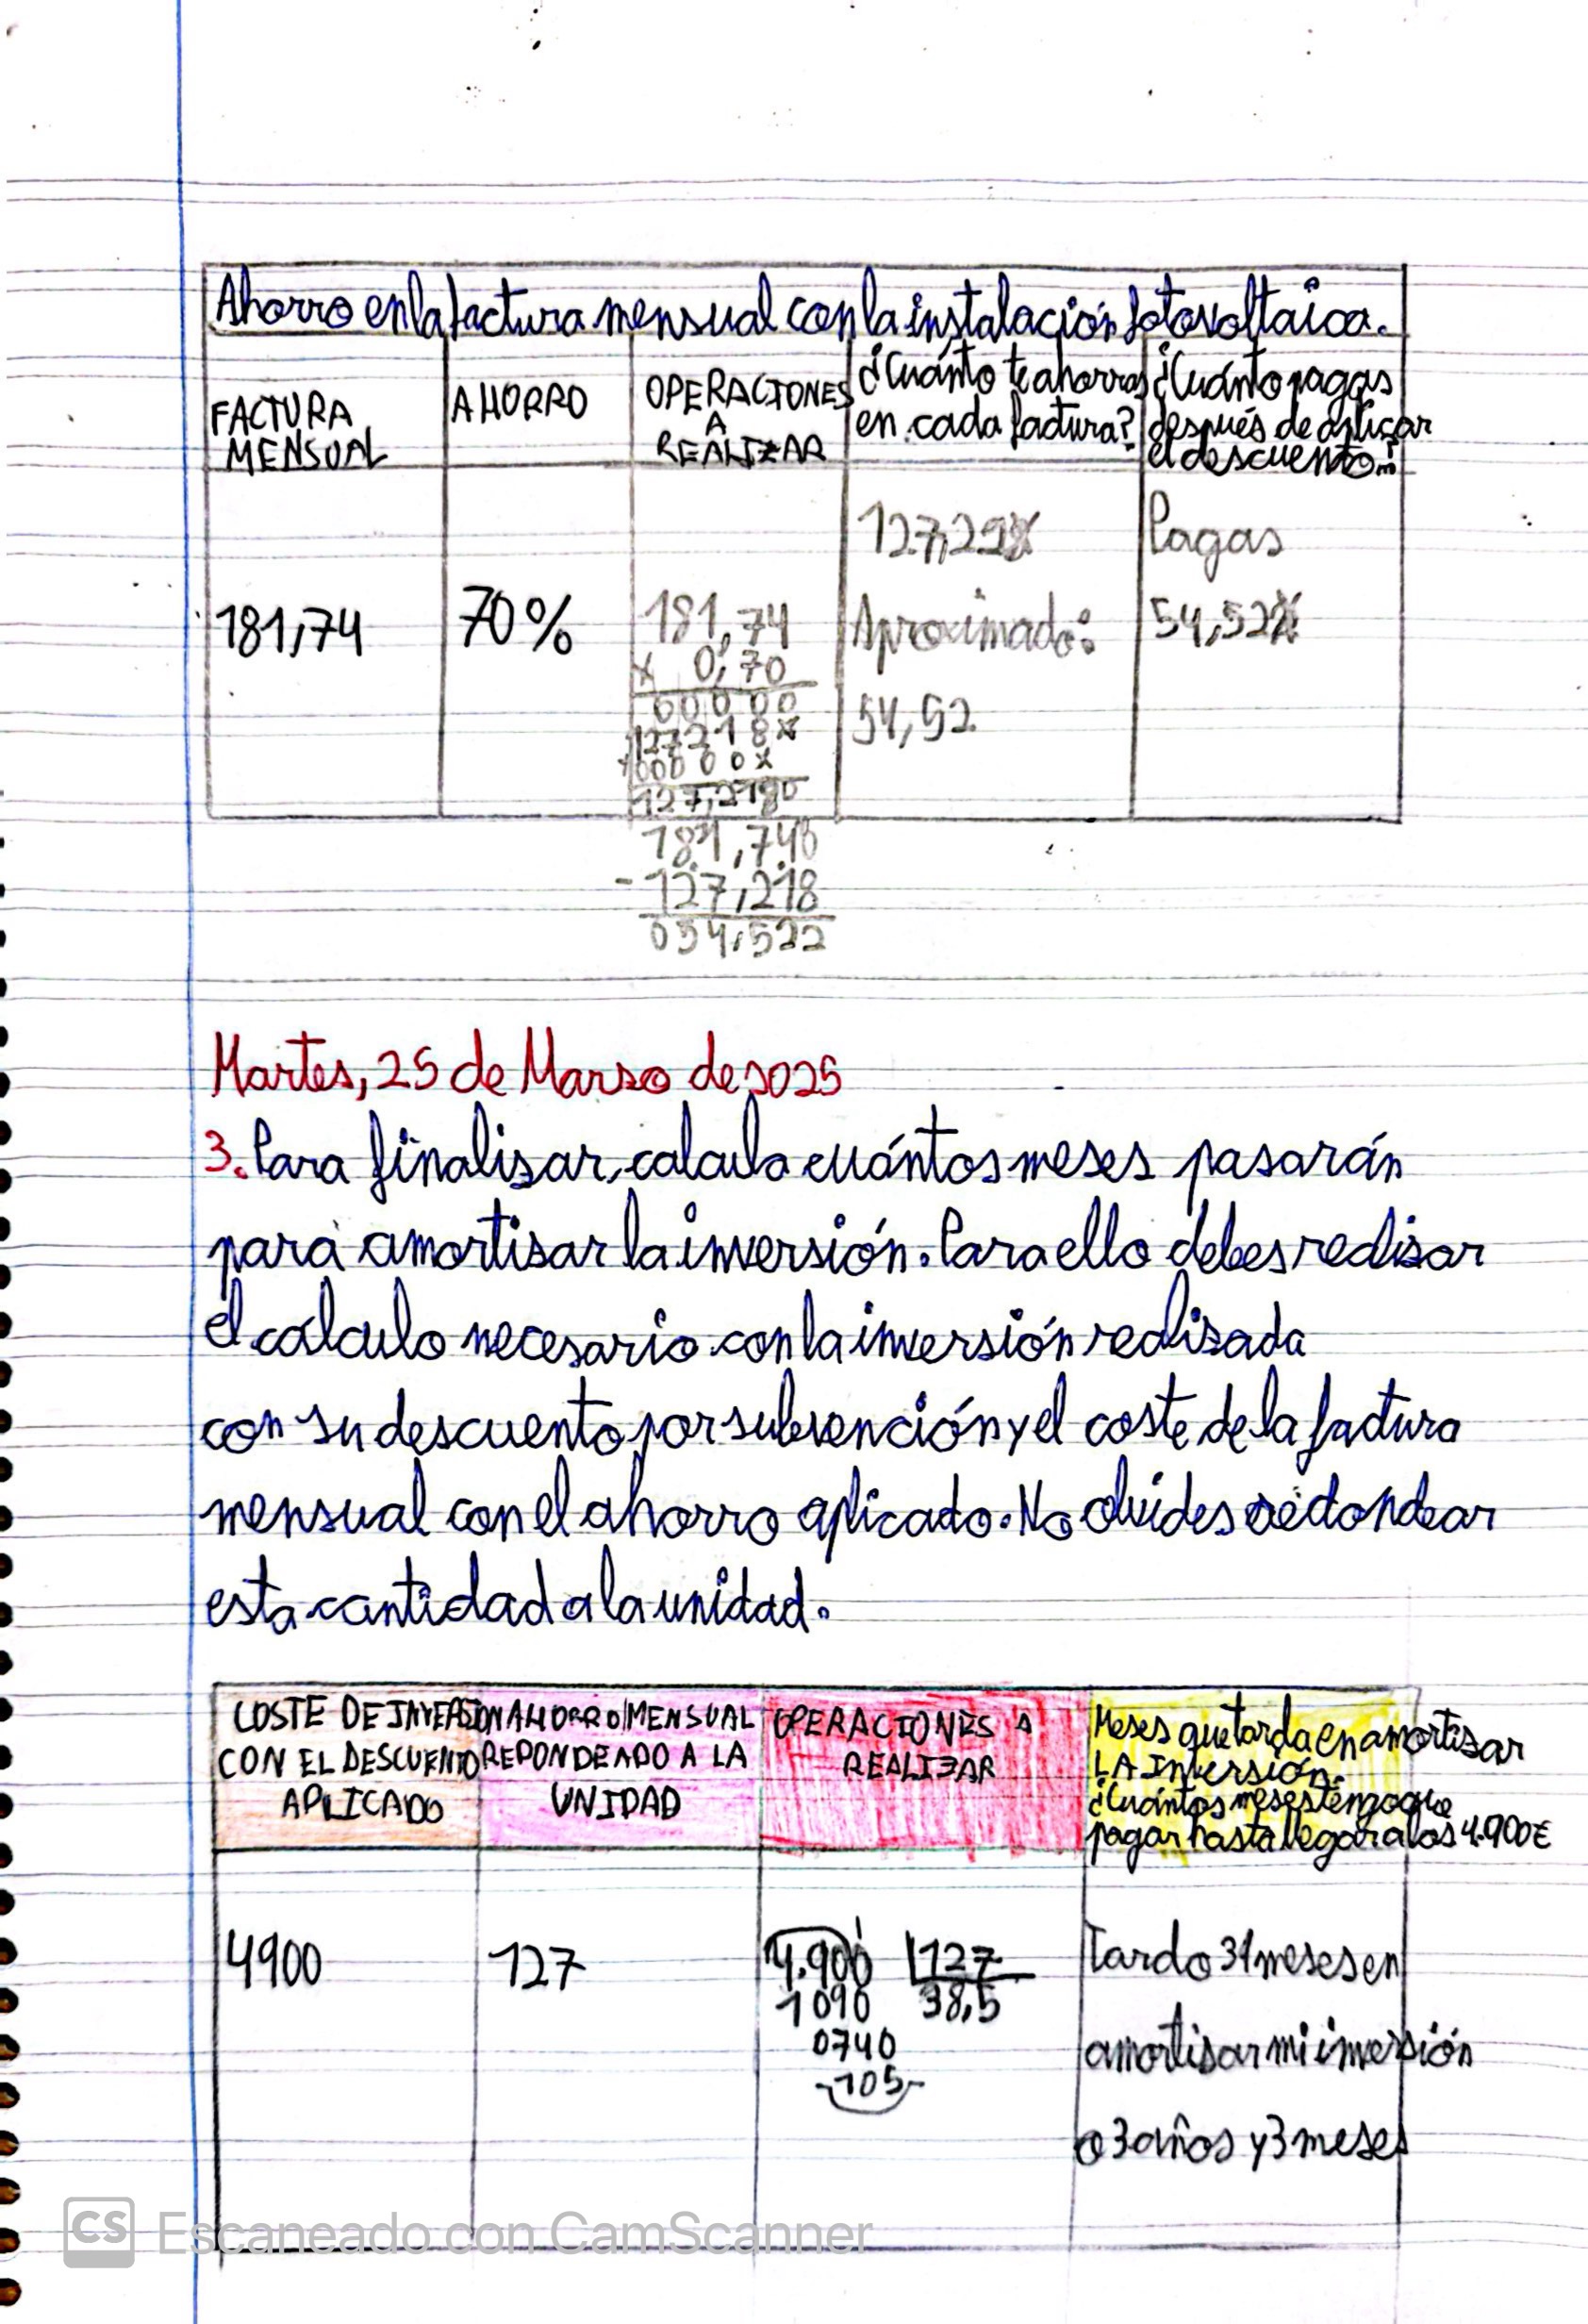 Ahorro en la factura mensual con la instalación fotovoltaica.
FACTURA MENSUAL
AHORRO
OPERACIONES A REALIZAR
¿Cuánto te ahorras en cada factura?
¿Cuánto pagas después de aplicar el descuento?
181,74
70%
181,74
x 0,70
00000
127218x
+00000x
127,2180
181,740
-127,218
054,522
Aproximado:
54,52
Pagas
54,52
Martes, 25 de Marzo de 2025
3. Para finalizar, calcula cuántos meses pasarán
para amortizar la inversión. Para ello debes realizar
el cálculo necesario con la inversión realizada
con su descuento por subvención y el coste de la factura
mensual con el ahorro aplicado. No olvides redondear
esta cantidad a la unidad.
COSTE DE INVERSION
CON EL DESCUENTO
APLICADO
AHORRO MENSUAL
REDONDEADO A LA
UNIDAD
OPERACIONES A
REALIZAR
Meses que tarda en amortizar
LA Inversión.
¿Cuántos meses tengo que
pagar hasta llegar a los 4.900€
4900
127
4.900 127
1090 38,5
0740
-105-
Tardo 31 meses en
amortizar mi inversión
o 3 años y 3 meses
CS Escaneado con CamScanner